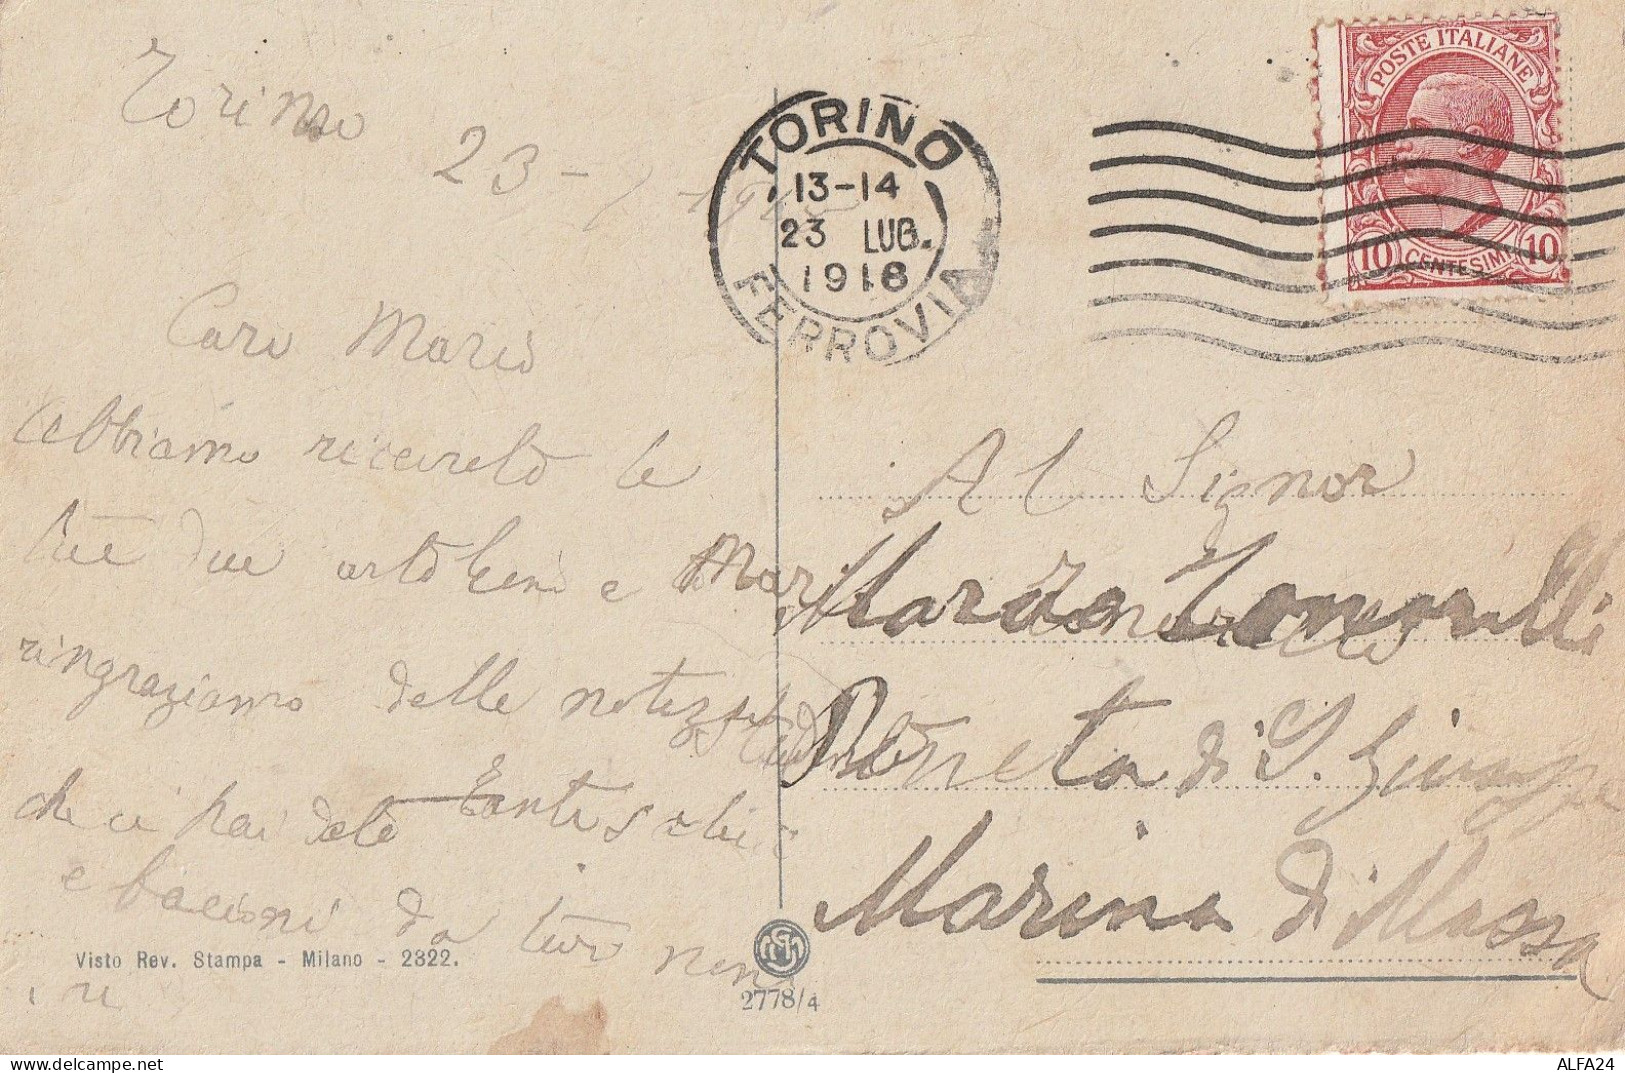 Torino
23 - 7 - 191
Caro Mario
abbiamo ricevuto le
tue due cartoline e
ringraziamo delle notizie
che ci hai dato Tanti saluti
e bacioni da tuoi
Visto Rev. Stampa - Milano - 2322.
2778/4
TORINO
13-14
23 LUG.
1918
FERROVIA
POSTE ITALIANE
10 CENTESIMI 10
Al Signor
Mario
Pineta di S. Giuseppe
Marina di Massa
ALFA24